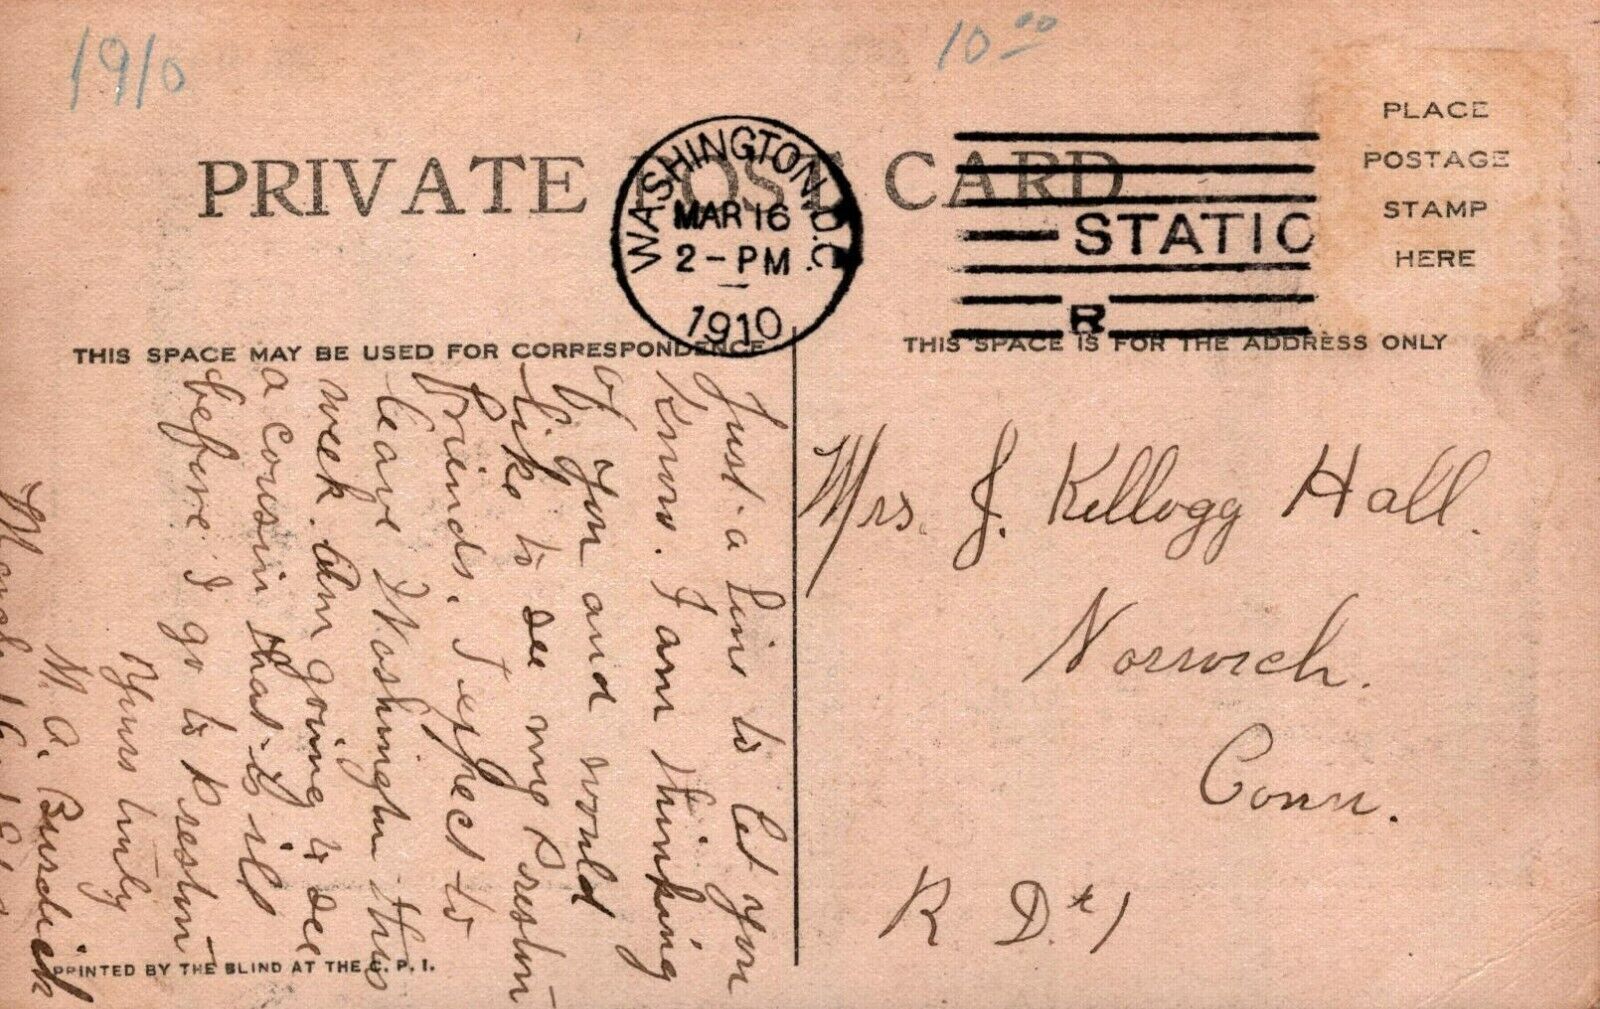 1910
10 00
PRIVATE POST CARD
WASHINGTON, D.C.
MAR 16
2 - PM
1910
STATIO
R
PLACE
POSTAGE
STAMP
HERE
THIS SPACE MAY BE USED FOR CORRESPONDENCE
THIS SPACE IS FOR THE ADDRESS ONLY
Just a line to let you
know. I am thinking
of you and would
like to see my Preston
friends. I expect to
leave Washington this
week. Am going to see
a cousin that is ill
before I go to Preston
Yours truly
M. A. Burdick
March
Mrs. J. Kellogg Hall.
Norwich.
Conn.
R D #1
PRINTED BY THE BLIND AT THE C. P. I.